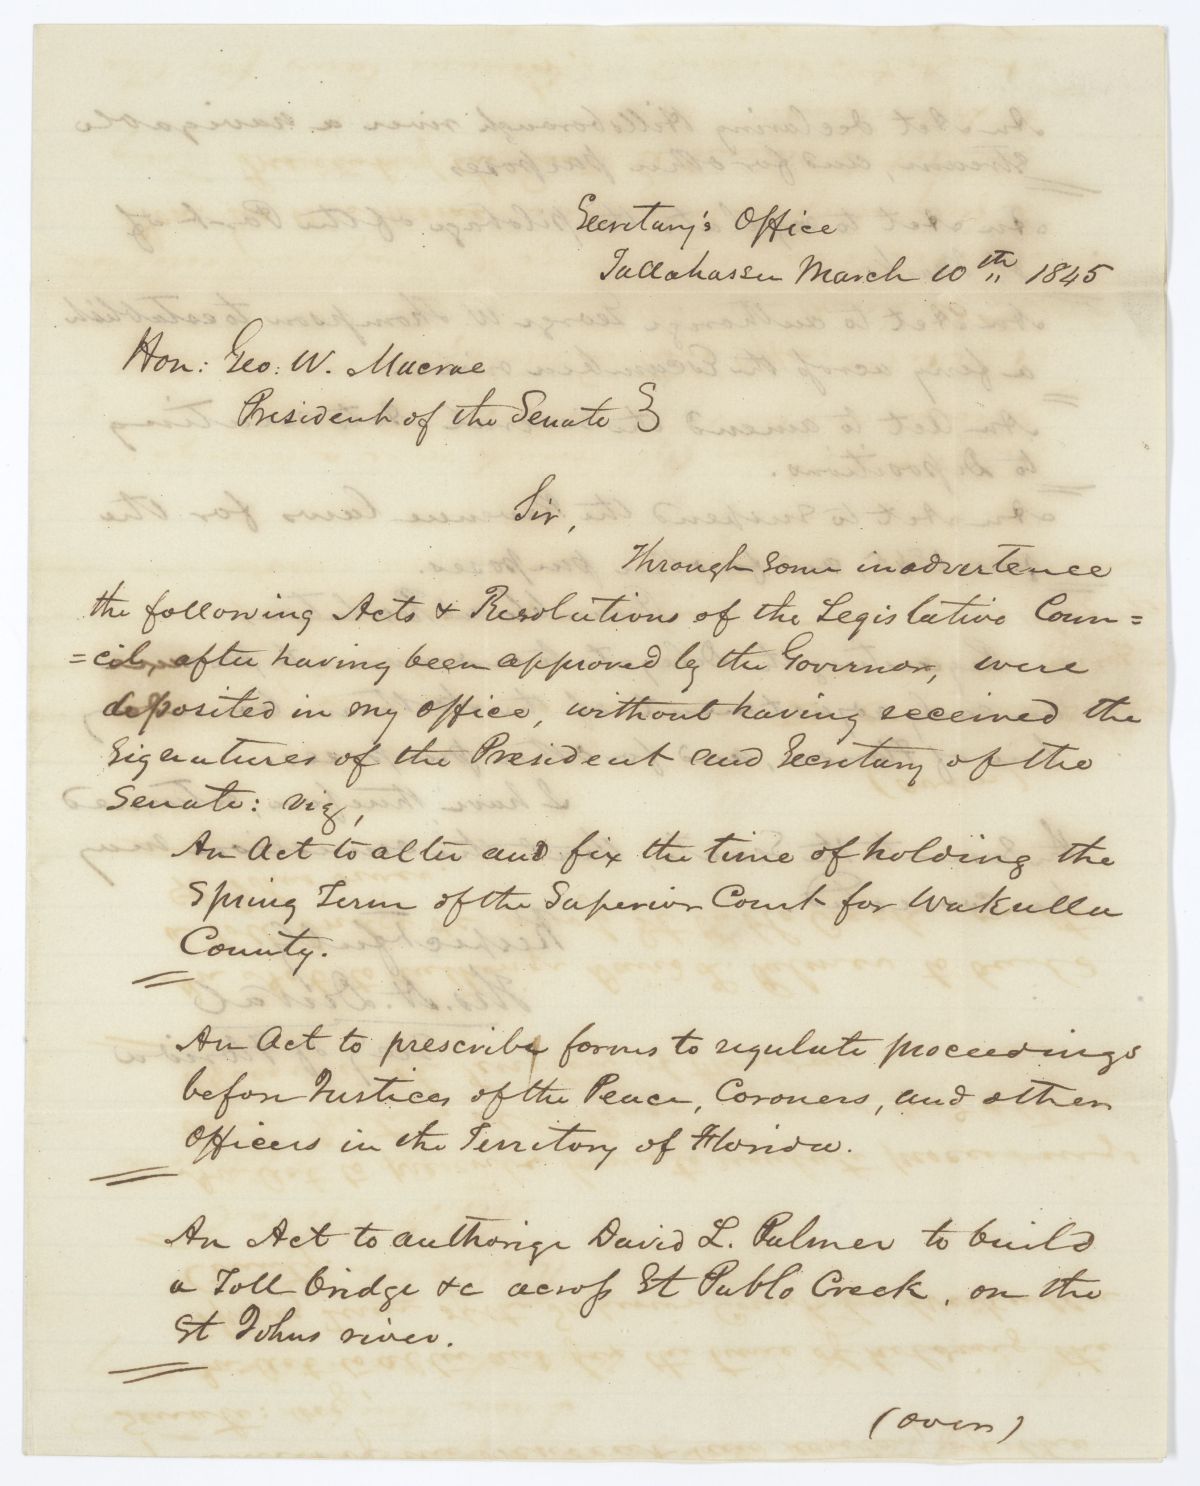 Secretary's Office
Tallahassee March 10th 1845
Hon: Geo: W. Macrae
President of the Senate
Sir,
Through some inadvertence
the following Acts & Resolutions of the Legislative Coun=
=cil, after having been approved by the Governor, were
deposited in my office, without having received the
signatures of the President and Secretary of the
Senate: viz,
An Act to alter and fix the time of holding the
Spring Term of the Superior Court for Wakulla
County.
An Act to prescribe forms to regulate proceedings
before Justices of the Peace, Coroners, and other
officers in the Territory of Florida.
An Act to authorize David L. Palmer to build
a Toll bridge &c across St Pablo Creek, on the
St Johns river.
(over)